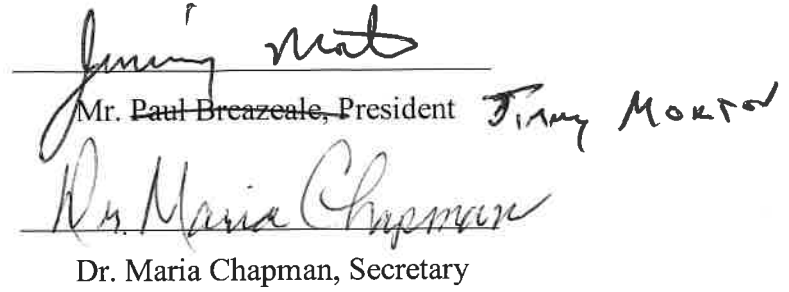 Jimmy Morton
Mr. Paul Breazeale, President Jimmy Morton
Dr. Maria Chapman
Dr. Maria Chapman, Secretary